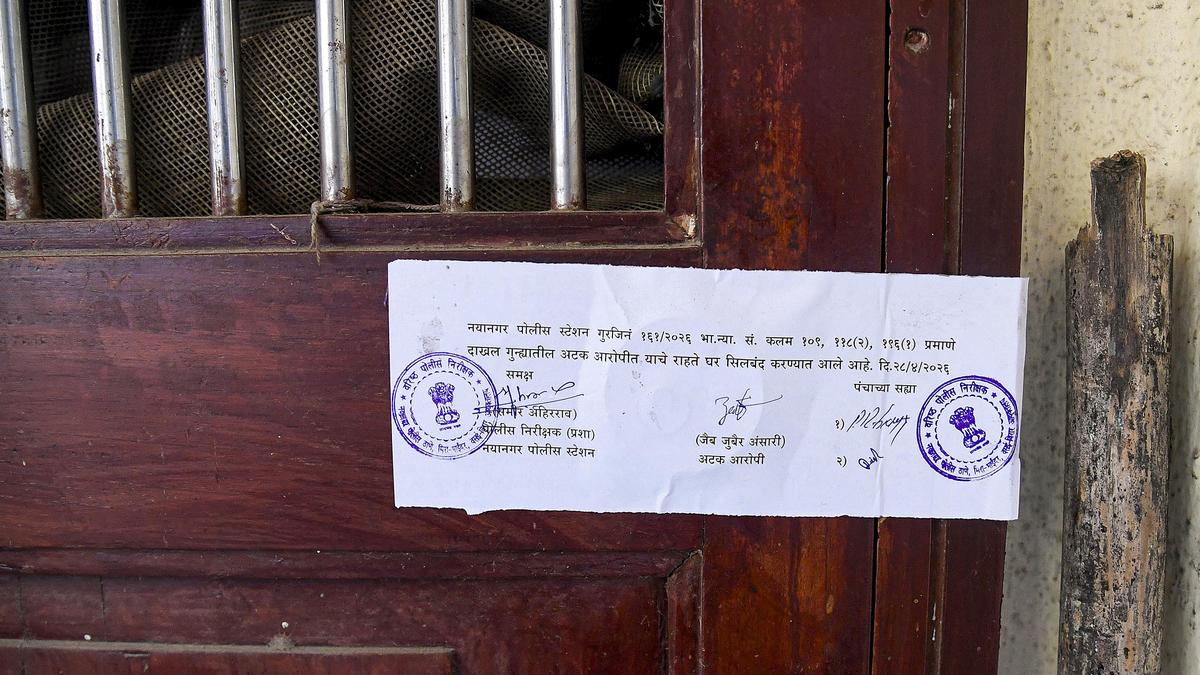 नयानगर पोलीस स्टेशन गुरजिनं १६१/२०२६ भा.न्या. सं. कलम १०९, ११८(२), १९६(१) प्रमाणे
दाखल गुन्ह्यातील अटक आरोपीत याचे राहते घर सिलबंद करण्यात आले आहे. दि.२८/४/२०२६
समक्ष
पंचाच्या सह्या
अहिरराव)
पोलीस निरीक्षक (प्रशा)
नयानगर पोलीस स्टेशन
(जैब जुबैर अंसारी)
अटक आरोपी
१)
२)
वरिष्ठ पोलीस निरीक्षक
वरिष्ठ पोलीस निरीक्षक